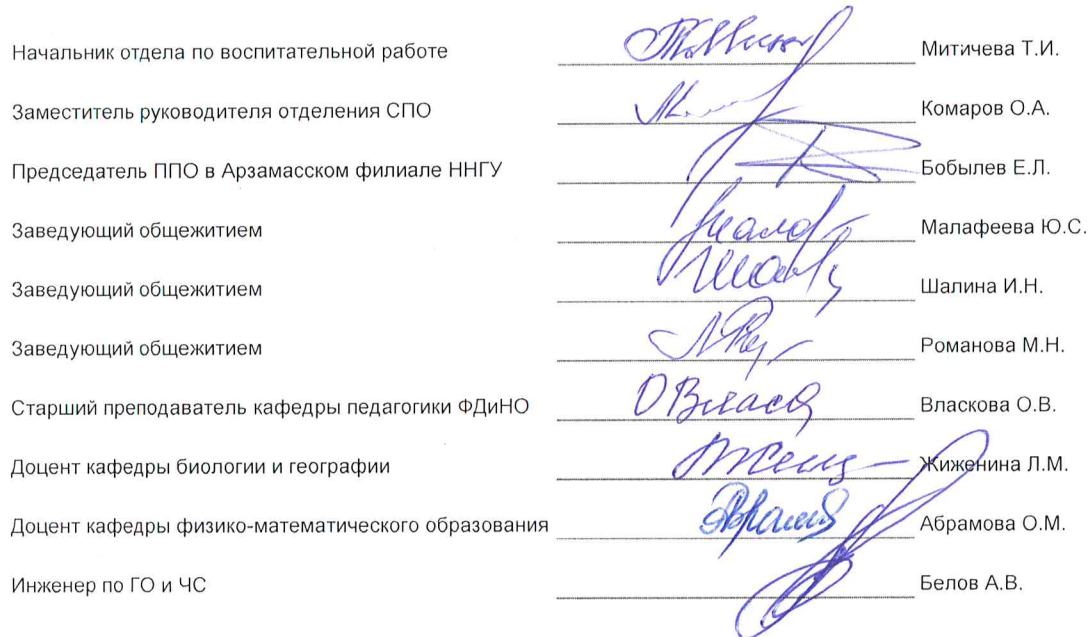 Начальник отдела по воспитательной работе Митичева Т.И.
Заместитель руководителя отделения СПО Комаров О.А.
Председатель ППО в Арзамасском филиале ННГУ Бобылев Е.Л.
Заведующий общежитием Малафеева Ю.С.
Заведующий общежитием Шалина И.Н.
Заведующий общежитием Романова М.Н.
Старший преподаватель кафедры педагогики ФДиНО Власкова О.В.
Доцент кафедры биологии и географии Жиженина Л.М.
Доцент кафедры физико-математического образования Абрамова О.М.
Инженер по ГО и ЧС Белов А.В.